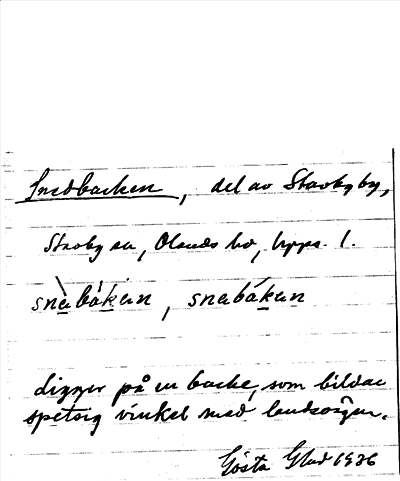 Snedbacken, del av Stavby by,
Stavby sn, Olands hd, Upps. l.
snèbákan, snebákan
ligger på en backe, som bildar
spetsig vinkel med landsvägen.
Gösta Glad 1936